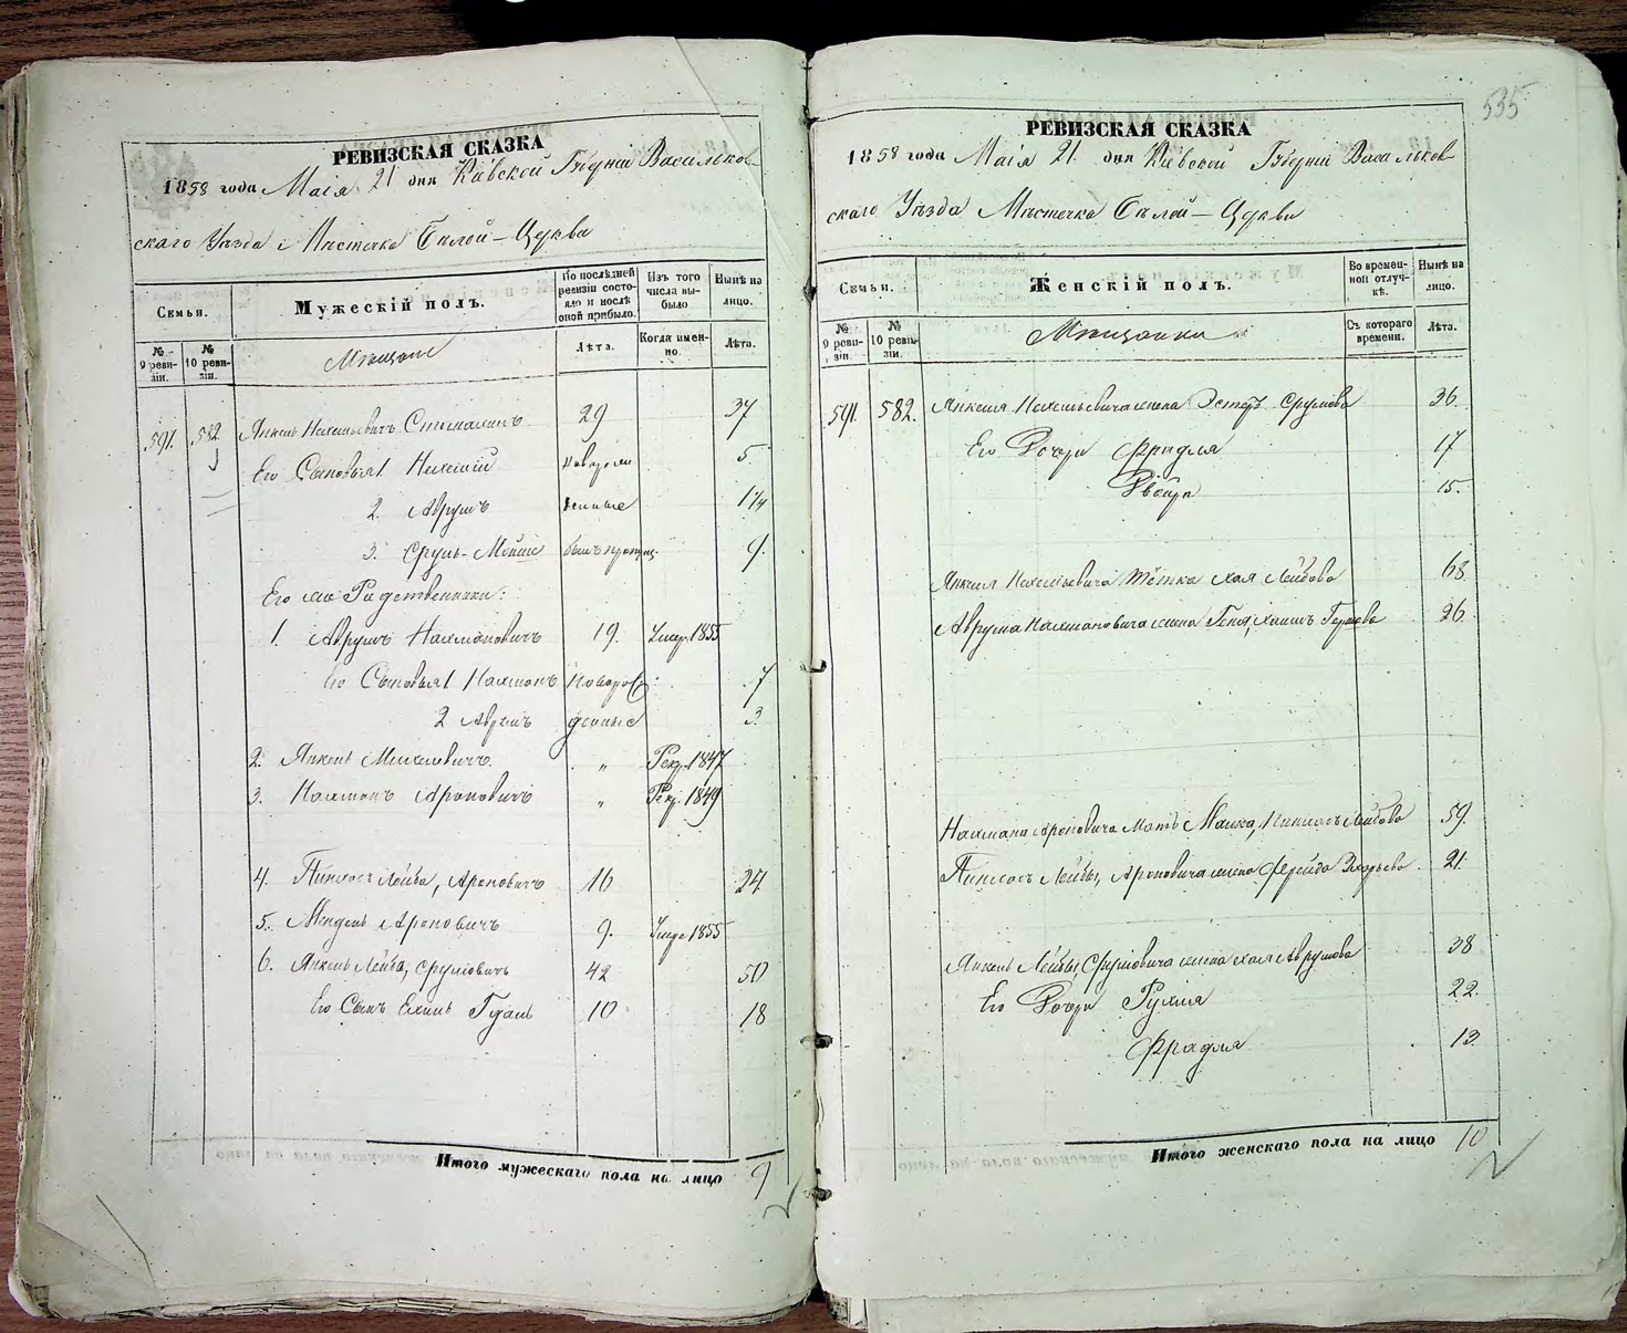 535
РЕВИЗСКАЯ СКАЗКА
1858 года Маія 21 дня Кіевской Губерніи Васильков
скаго Уѣзда Мѣстечка Бѣлой-Церкви
Семьи.
Мужескій полъ.
По послѣдней ревизіи состояло и послѣ оной прибыло.
Изъ того числа выбыло
Ныне на лицо.
№ 9 ревизіи.
№ 10 ревизіи.
Мѣщане
Лѣта.
Когда именно.
Лѣта.
591. 582 Янкель Нахимьевичъ 29 37
Его Сыновья 1 Новорож 5
2. Аврумъ денные 1 1/4
3. Сруль-Мойше былъ пропущ. 9.
Его же Родственники:
1. Аврумъ Нахмановичъ 19. Умер. 1855
Его Сыновья 1 Нахманъ Новорож 7
2 Аврумъ денные 3.
2. Янкель " Рекр. 1847
3. Нахманъ Ароновичъ " Рекр. 1849
4. Пинхосъ Лейба, Ароновичъ 16 24
5. Мендель Ароновичъ 9. Умер 1855
6. Янкель Лейба, Срулiовичъ 42 50
Его Сынъ 10 18
Итого мужескаго пола на лицо 9
РЕВИЗСКАЯ СКАЗКА
1858 года Маія 21 дня Кіевской Губерніи Васильков
скаго Уѣзда Мѣстечка Бѣлой-Церкви
Семьи.
Женскій полъ.
Во временной отлучкѣ.
Ныне на лицо.
№ 9 ревизіи.
№ 10 ревизіи.
Мѣщанки
Съ котораго времени.
Лѣта.
591. 582. Янкеля Нахимьевича жена Эстеръ Срулiова 36
Его Дочери Фридля 17
Двойра 15.
Янкеля Нахимьевича тётка Хая Лейбова 68
Аврума Нахмановича жена Геня, 26
Нахмана Ароновича мать Малка, Пинхосъ Лейбова 59
Пинхосъ Лейбы, Ароновича жена Фрейда 21
Янкель Лейбы, Срулiовича жена Хая Аврумова 38
Его Дочери Рухля 22.
Фрадля 13
Итого женскаго пола на лицо 10